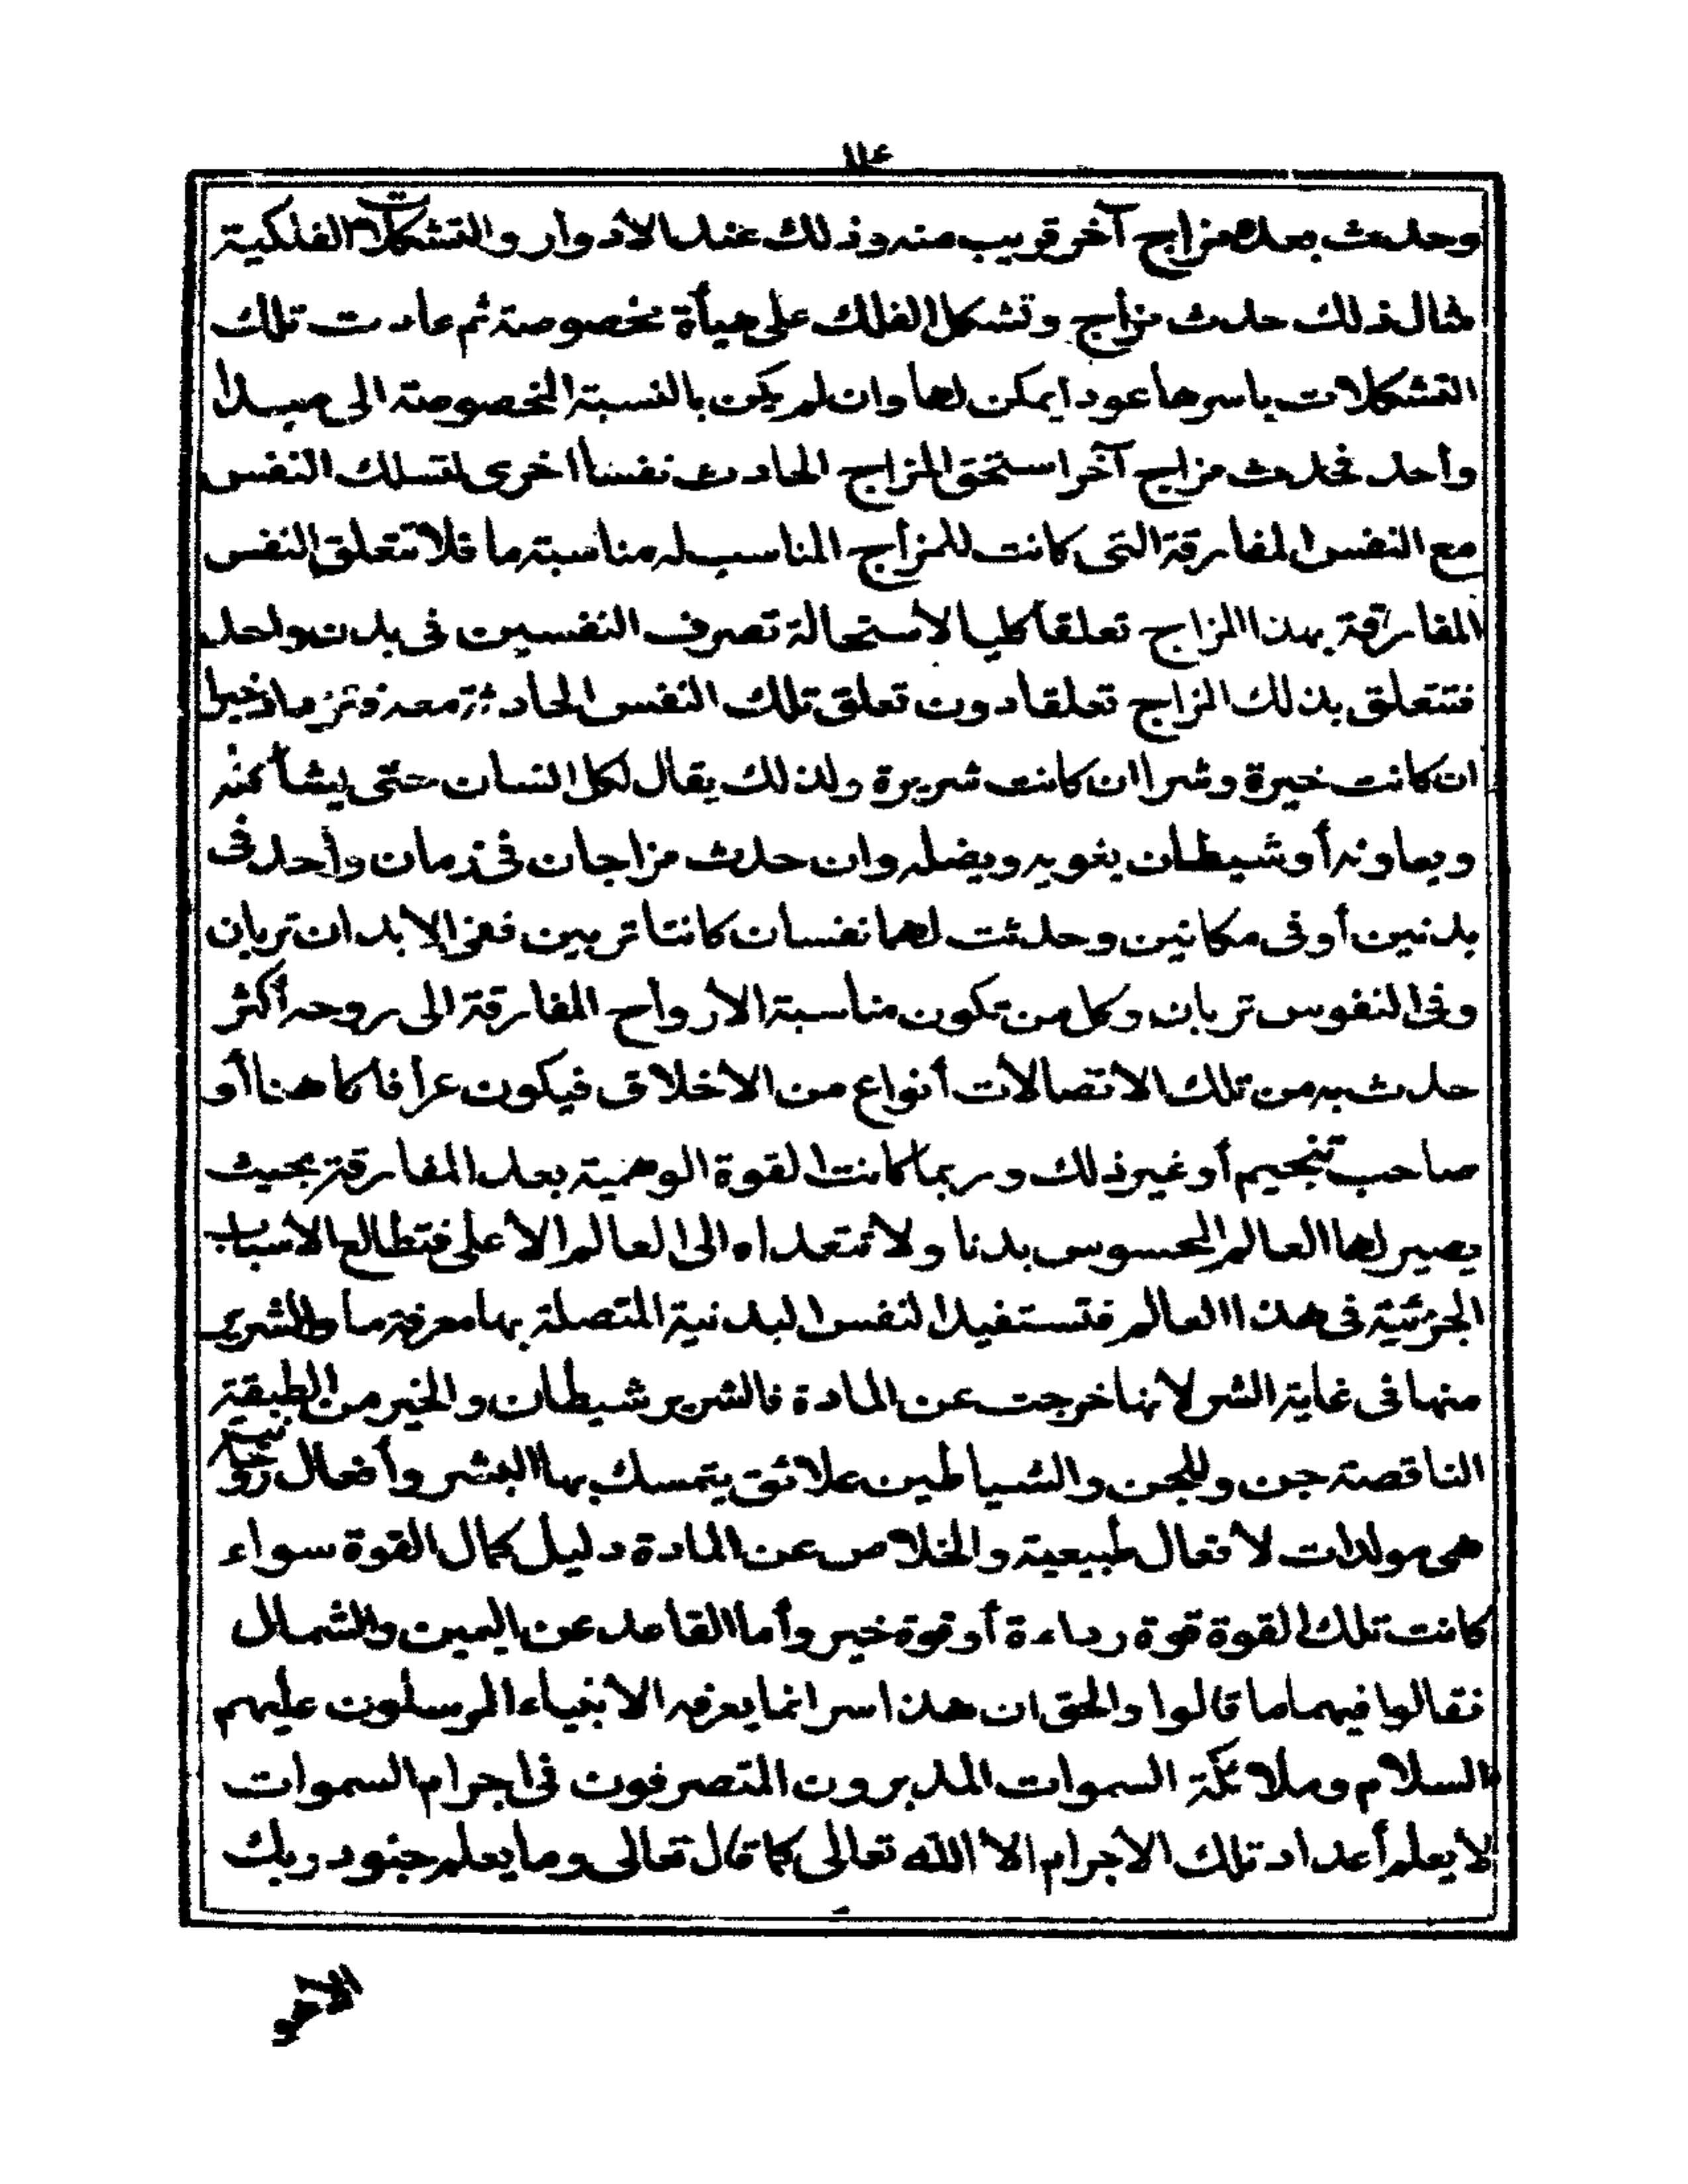 ١١٤
وحدث بعده مزاج آخر قريب منه وذلك عند الأدوار والتشكلات الفلكية
مثال ذلك حدث مزاج وتشكل الفلك على هيأة مخصوصة ثم عادت تلك
التشكلات باسرها عودا يمكن لها وان لم يكن بالنسبة المخصوصة الى مبدأ
وأحد فحدث مزاج آخر استحق المزاج الحادث نفسا اخرى لتسلك النفس
مع النفس المفارقة التى كانت للمزاج المناسب له مناسبة ما فلا تتعلق النفس
المفارقة بهذا المزاج تعلقا كليا لأستحالة تصرف النفسين فى بدن واحد
فتتعلق بذلك المزاج تعلقا دون تعلق تلك النفس الحادثة معه فتزيدها خيرا
ان كانت خيرة وشرا ان كانت شريرة ولذلك يقال لكل انسان حتى يشأكنه
ويعاونه أو شيطان يغويه ويضله وان حدث مزاجان فى زمان وأحد فى
بدنين أو فى مكانين وحدثت لهما نفسان كانتا تربين ففى الابدان تربان
وفى النفوس تربان وكل من تكون مناسبة الأرواح المفارقة الى روحه أكثر
حدث به من تلك الاتصالات أنواع من الاخلاق فيكون عرافا كاهنا أو
صاحب تنجيم أو غير ذلك وربما كانت القوة الوهمية بعد المفارقة بحيث
يصير لها العالم المحسوس بدنا ولا تتعداه الى العالم الأعلى فتطالع الأسباب
الجزئية فى هذا العالم فتستفيد النفس البدنية المتصلة بها معرفة ما والشرير
منها فى غاية الشر لانها خرجت عن المادة فالشرير شيطان والخير من الطبقة
الناقصة جن وللجن والشياطين علائق يتمسك بها البشر وأفعال روحانية
هى مولدات لأفعال طبيعية والخلاص عن المادة دليل كمال القوة سواء
كانت تلك القوة قوة رداءة أو قوة خير وأما القاعد عن اليمين والشمال
فقالوا فيهما ما قالوا والحق ان هذا سر انما يعرفه الانبياء المرسلون عليهم
السلام وملائكة السموات المدبرون المتصرفون فى اجرام السموات
لا يعلم أعداد تلك الأجرام الا الله تعالى كما قال تعالى وما يعلم جنود ربك
الا هو